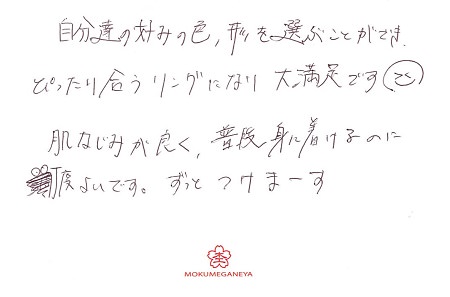 自分達の好みの色，形を選ぶことができ，
ぴったり合うリングになり大満足です
肌なじみが良く，普段身に着けるのに
丁度よいです。ずっとつけまーす
MOKUMEGANEYA